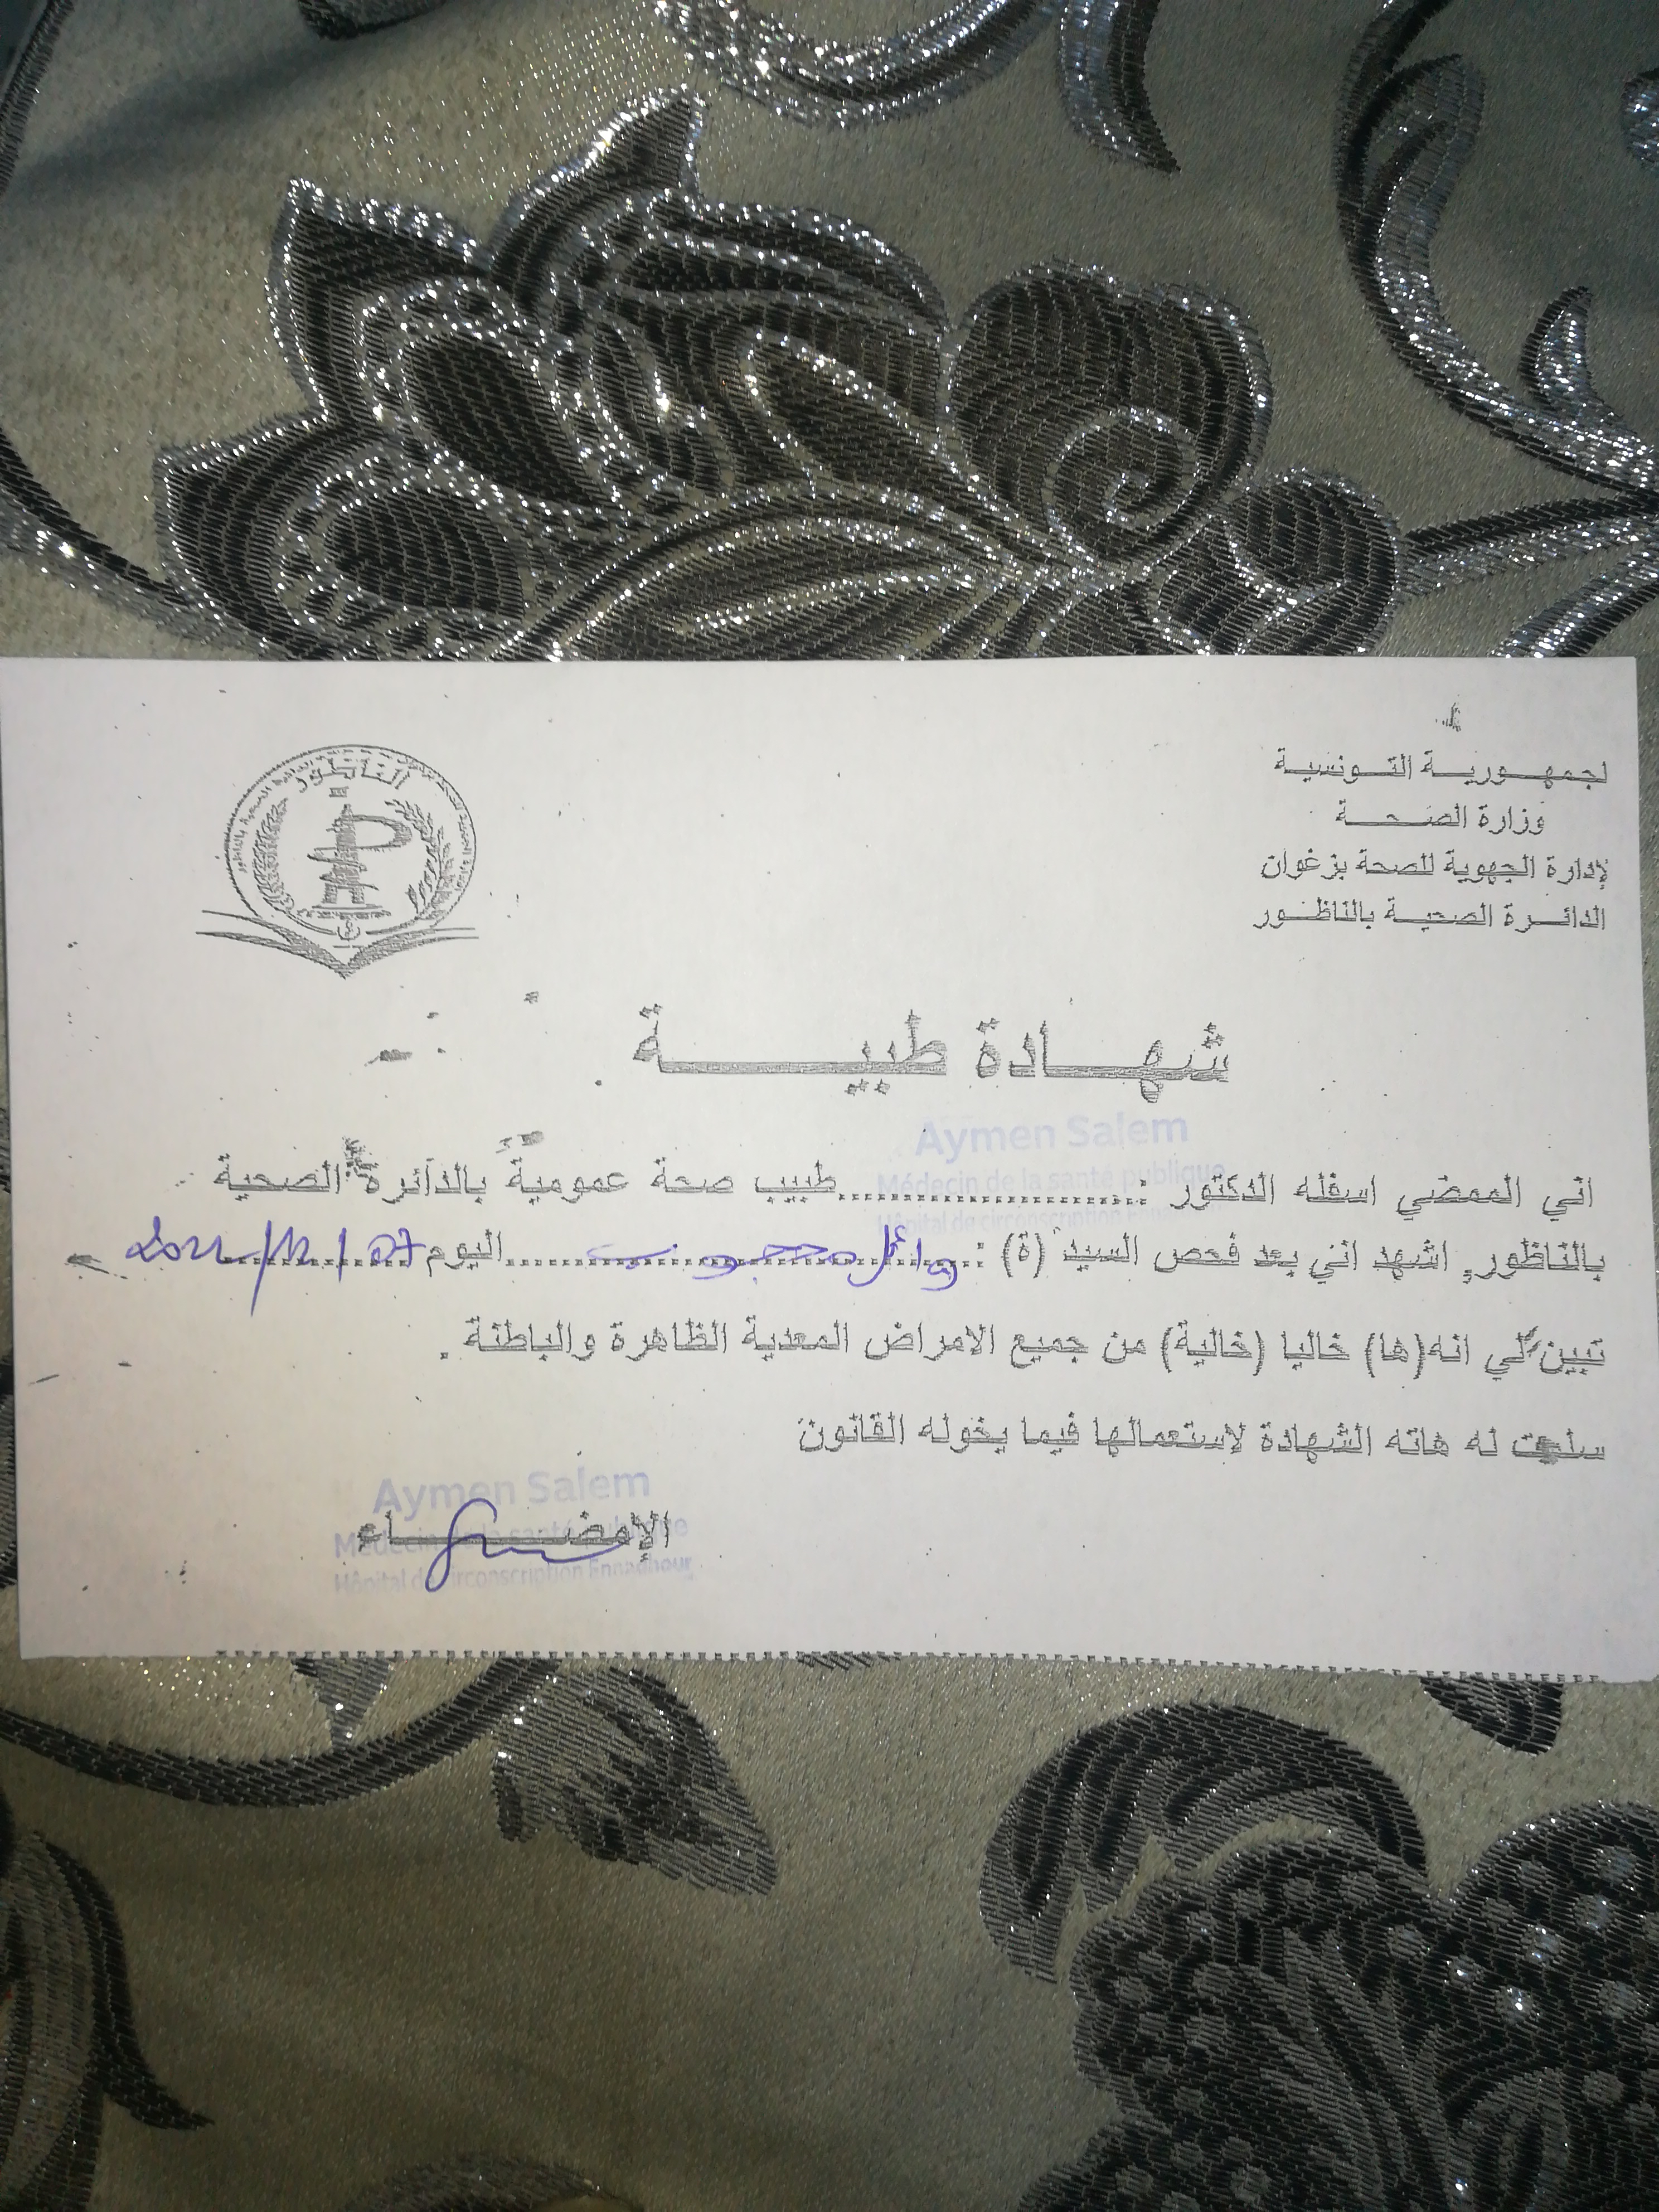 لجمهورية التونسية
وزارة الصحة
لإدارة الجهوية للصحة بزغوان
الدائرة الصحية بالناظور
الناظور
شهادة طبية
Aymen Salem
Médecin de la santé publique
Hôpital de circonscription Ennadhour
اني الممضي اسفله الدكتور :..........................طبيب صحة عمومية بالدائرة الصحية
بالناظور, اشهد اني بعد فحص السيد (ة) : وائل محجوب اليوم 07/12/2022
تبين لي انه(ها) خاليا (خالية) من جميع الامراض المعدية الظاهرة والباطنة .
سلمت له هاته الشهادة لاستعمالها فيما يخوله القانون
الإمضاء
Aymen Salem
Médecin de la santé publique
Hôpital de circonscription Ennadhour